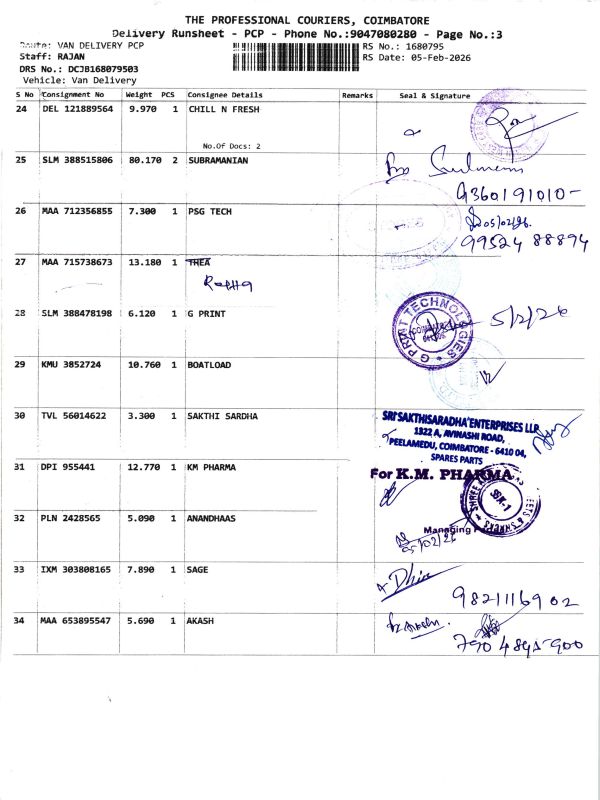 THE PROFESSIONAL COURIERS, COIMBATORE
Delivery Runsheet - PCP - Phone No.:9047080280 - Page No.:3
Route: VAN DELIVERY PCP
RS No.: 1680795
Staff: RAJAN
RS Date: 05-Feb-2026
DRS No.: DCJB168079503
Vehicle: Van Delivery
S No Consignment No Weight PCS Consignee Details Remarks Seal & Signature
24 DEL 121889564 9.970 1 CHILL N FRESH
No.Of Docs: 2
25 SLM 388515806 80.170 2 SUBRAMANIAN
9360191010-
26 MAA 712356855 7.300 1 PSG TECH
05/02/26
99524 88894
27 MAA 715738673 13.180 1 THEA
28 SLM 388478198 6.120 1 G PRINT
G PRINT TECHNOLOGIES
5/2/26
29 KMU 3852724 10.760 1 BOATLOAD
30 TVL 56014622 3.300 1 SAKTHI SARDHA
SRI SAKTHISARADHA ENTERPRISES LLP
1322 A, AVINASHI ROAD,
PEELAMEDU, COIMBATORE - 6410 04,
SPARES PARTS
31 DPI 955441 12.770 1 KM PHARMA
For K.M. PHARMA
32 PLN 2428565 5.090 1 ANANDHAAS
Managing
05/02/26
33 IXM 303808165 7.890 1 SAGE
9821116902
34 MAA 653895547 5.690 1 AKASH